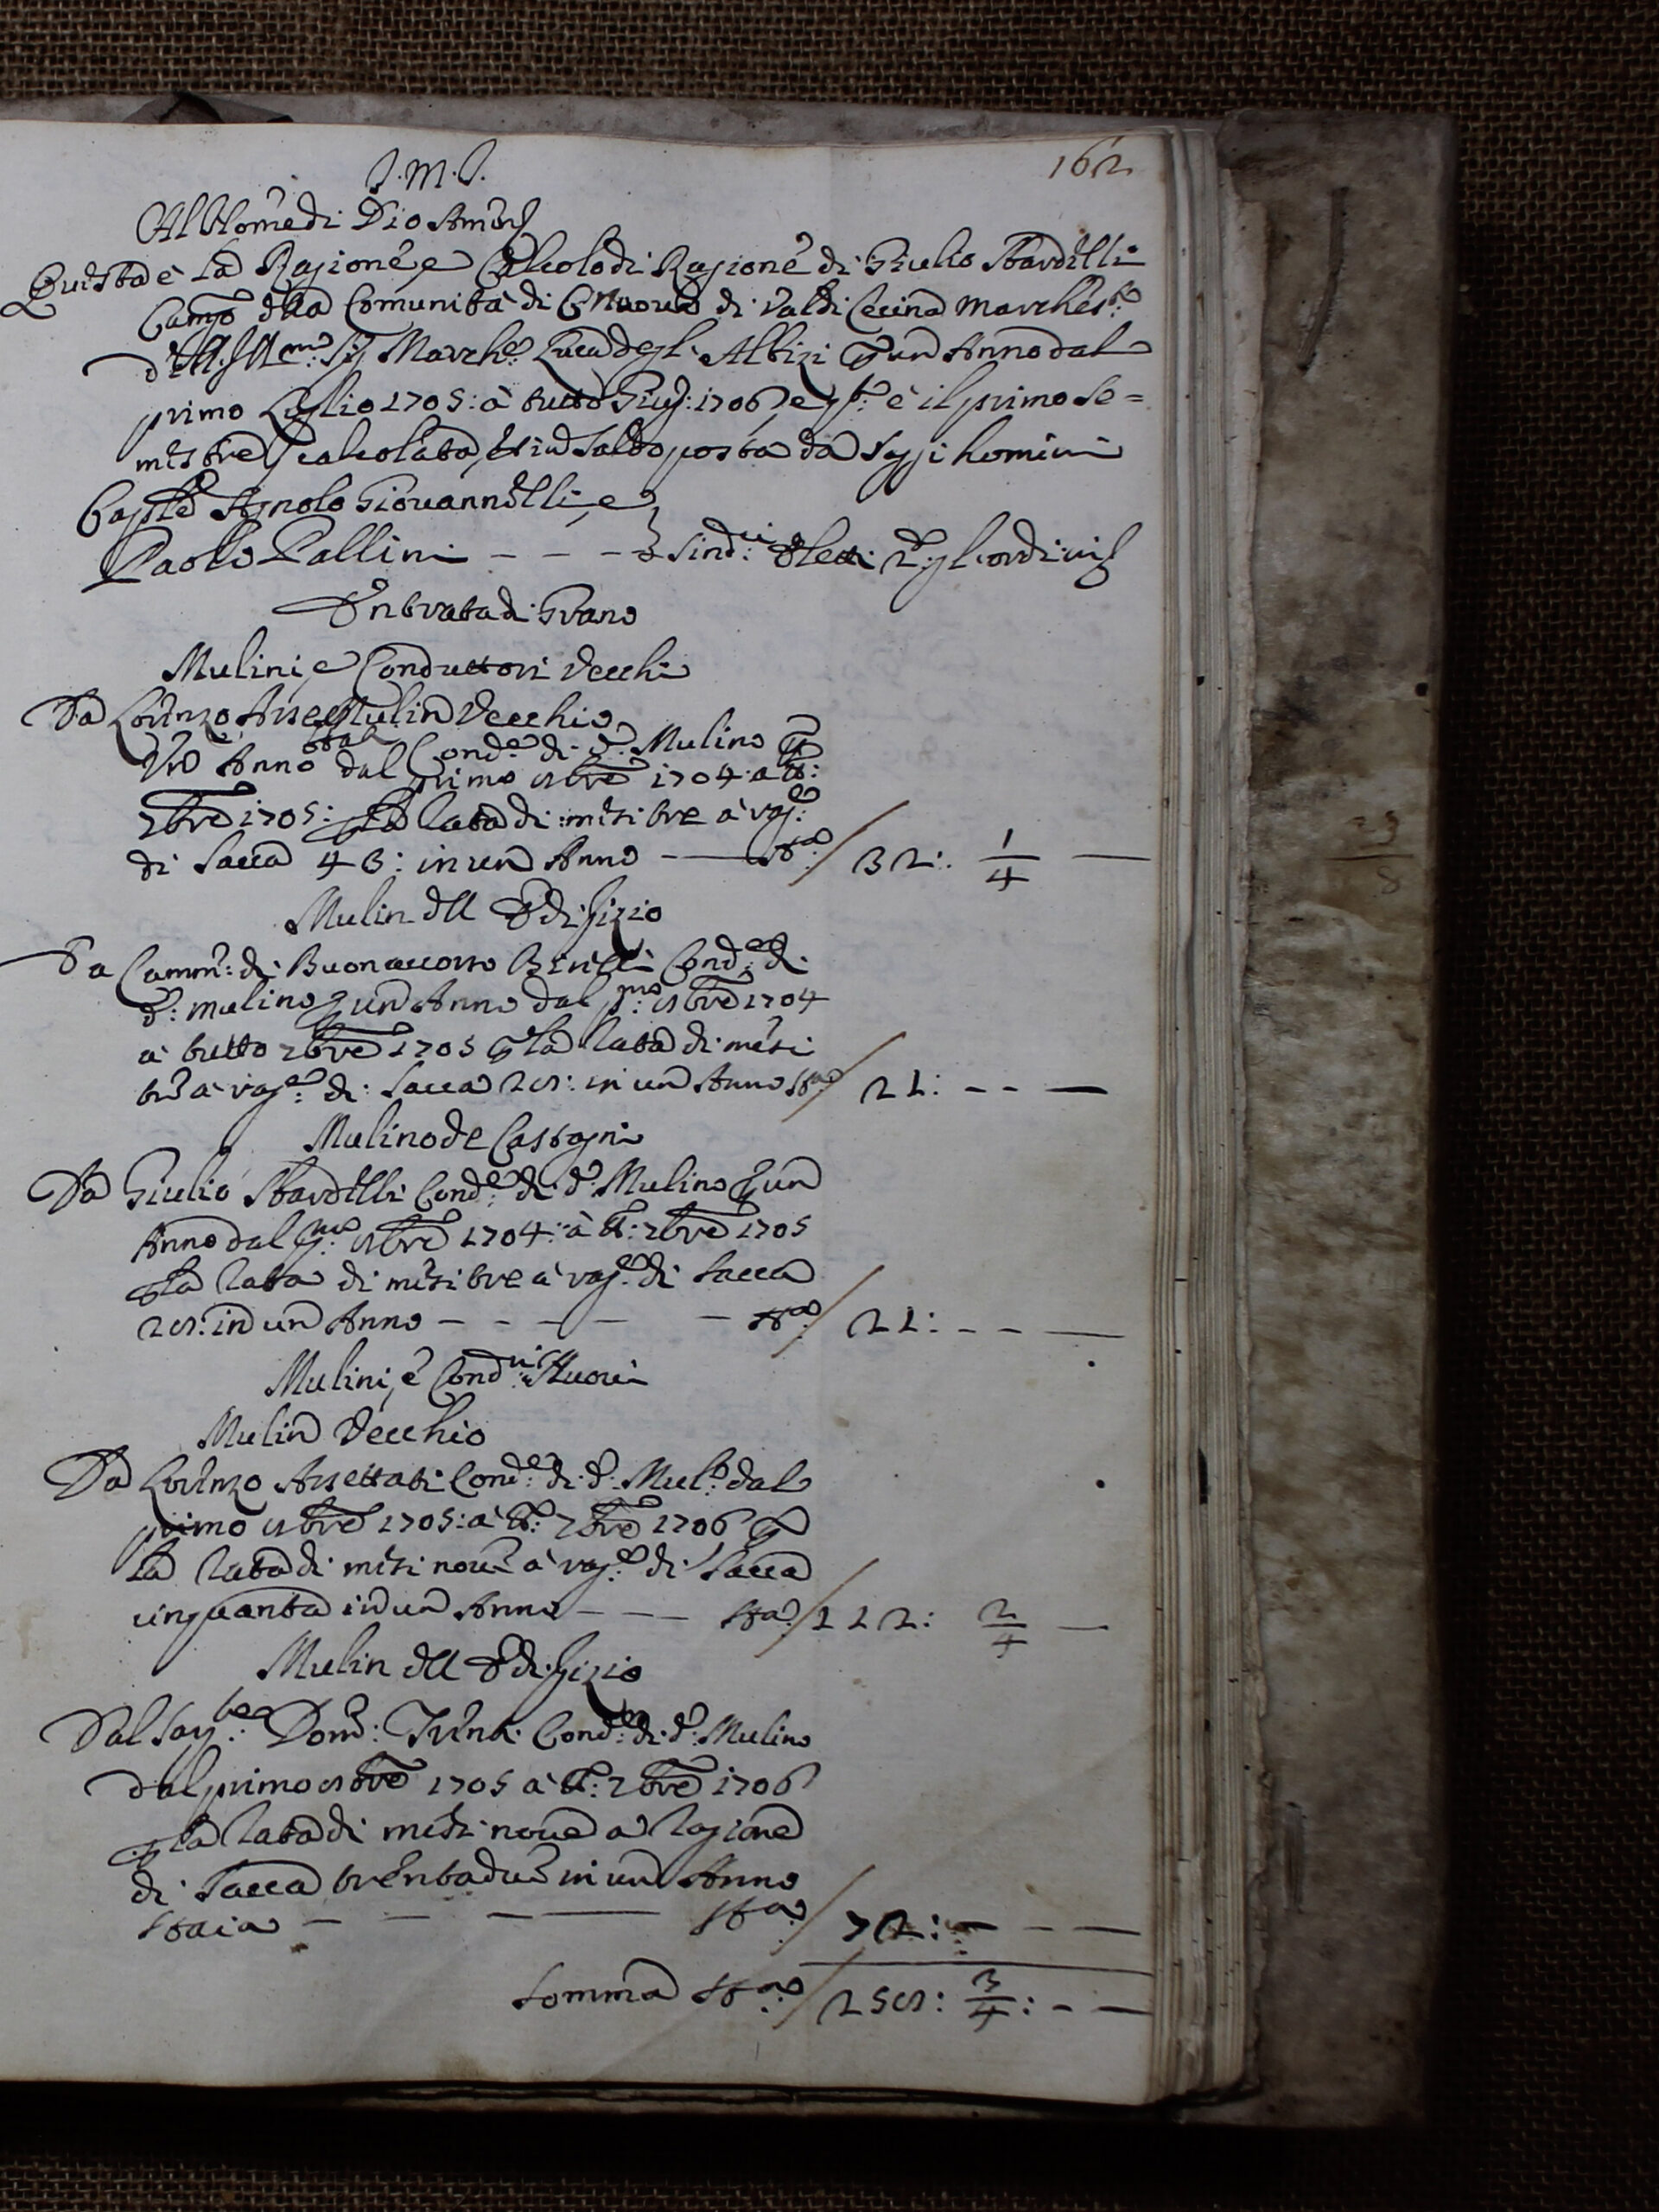 162
J. M. J.
Al Nome di Dio Amen
Questa è la Ragione, e Calcolo di Ragione di Giulio Stardelli
Camgo della Comunità di C. Nuovo di Val di Cecina Marches.to
dell' Ill.mo Sig. March.e Luca degl' Albizi p un Anno dal
primo Luglio 1705: à tutto Giug: 1706, e q.to è il primo Se=
mestre calcolata, et in Saldo posta da Saggi homini
Cap.le Agnolo Giovannelli, e
Paolo Pallini - - - Sind.ci Eletti d. gl' ordini
Entrata di Grano
Mulini, e Conduttori Vecchi
Da Lorenzo Asse Mulin Vecchio
ttati Cond.e di d.o Mulino p
Un Anno dal primo 8bre 1704: a tt.o:
7bre 1705: p la rata di mesi tre à rag.e
di Sacca 43: in un Anno - - Sta / 32: 1/4 -
Mulin dell Edifizio
Da Camm: di Buonaccorso Cond.e di
d.o: mulino p un Anno dal p.mo 8bre 1704
a tutto 7bre 1705 p la rata di mesi
tre à rag.e di Sacca 28: in un Anno Sta / 21: - - -
Mulino de Castagni
Da Giulio Stardelli Cond.e di d.o Mulino p un
Anno dal p.mo 8bre 1704: à tt.o: 7bre 1705
p la rata di mesi tre à rag.e di Sacca
28: in un Anno - - - - - Sta / 21: - - -
Mulini, e Cond.ri Nuovi
Mulin Vecchio
Da Lorenzo Assettati Cond.e di d.o Mul.o dal
primo 8bre 1705: à tt.o: 7bre 1706 p
la rata di mesi nove à rag.e di Sacca
cinquanta in un Anno - - - Sta / 112: 2/4 -
Mulin dell Edifizio
Dal Dom.o: Cond.e di d.o: Mulino
dal primo 8bre 1705 à tt.o: 7bre 1706
p la rata di mesi nove a ragione
di Sacca trentadue in un Anno
Staia - - - - Sta / 72: - - -
Somma Sta / 258: 3/4: - -